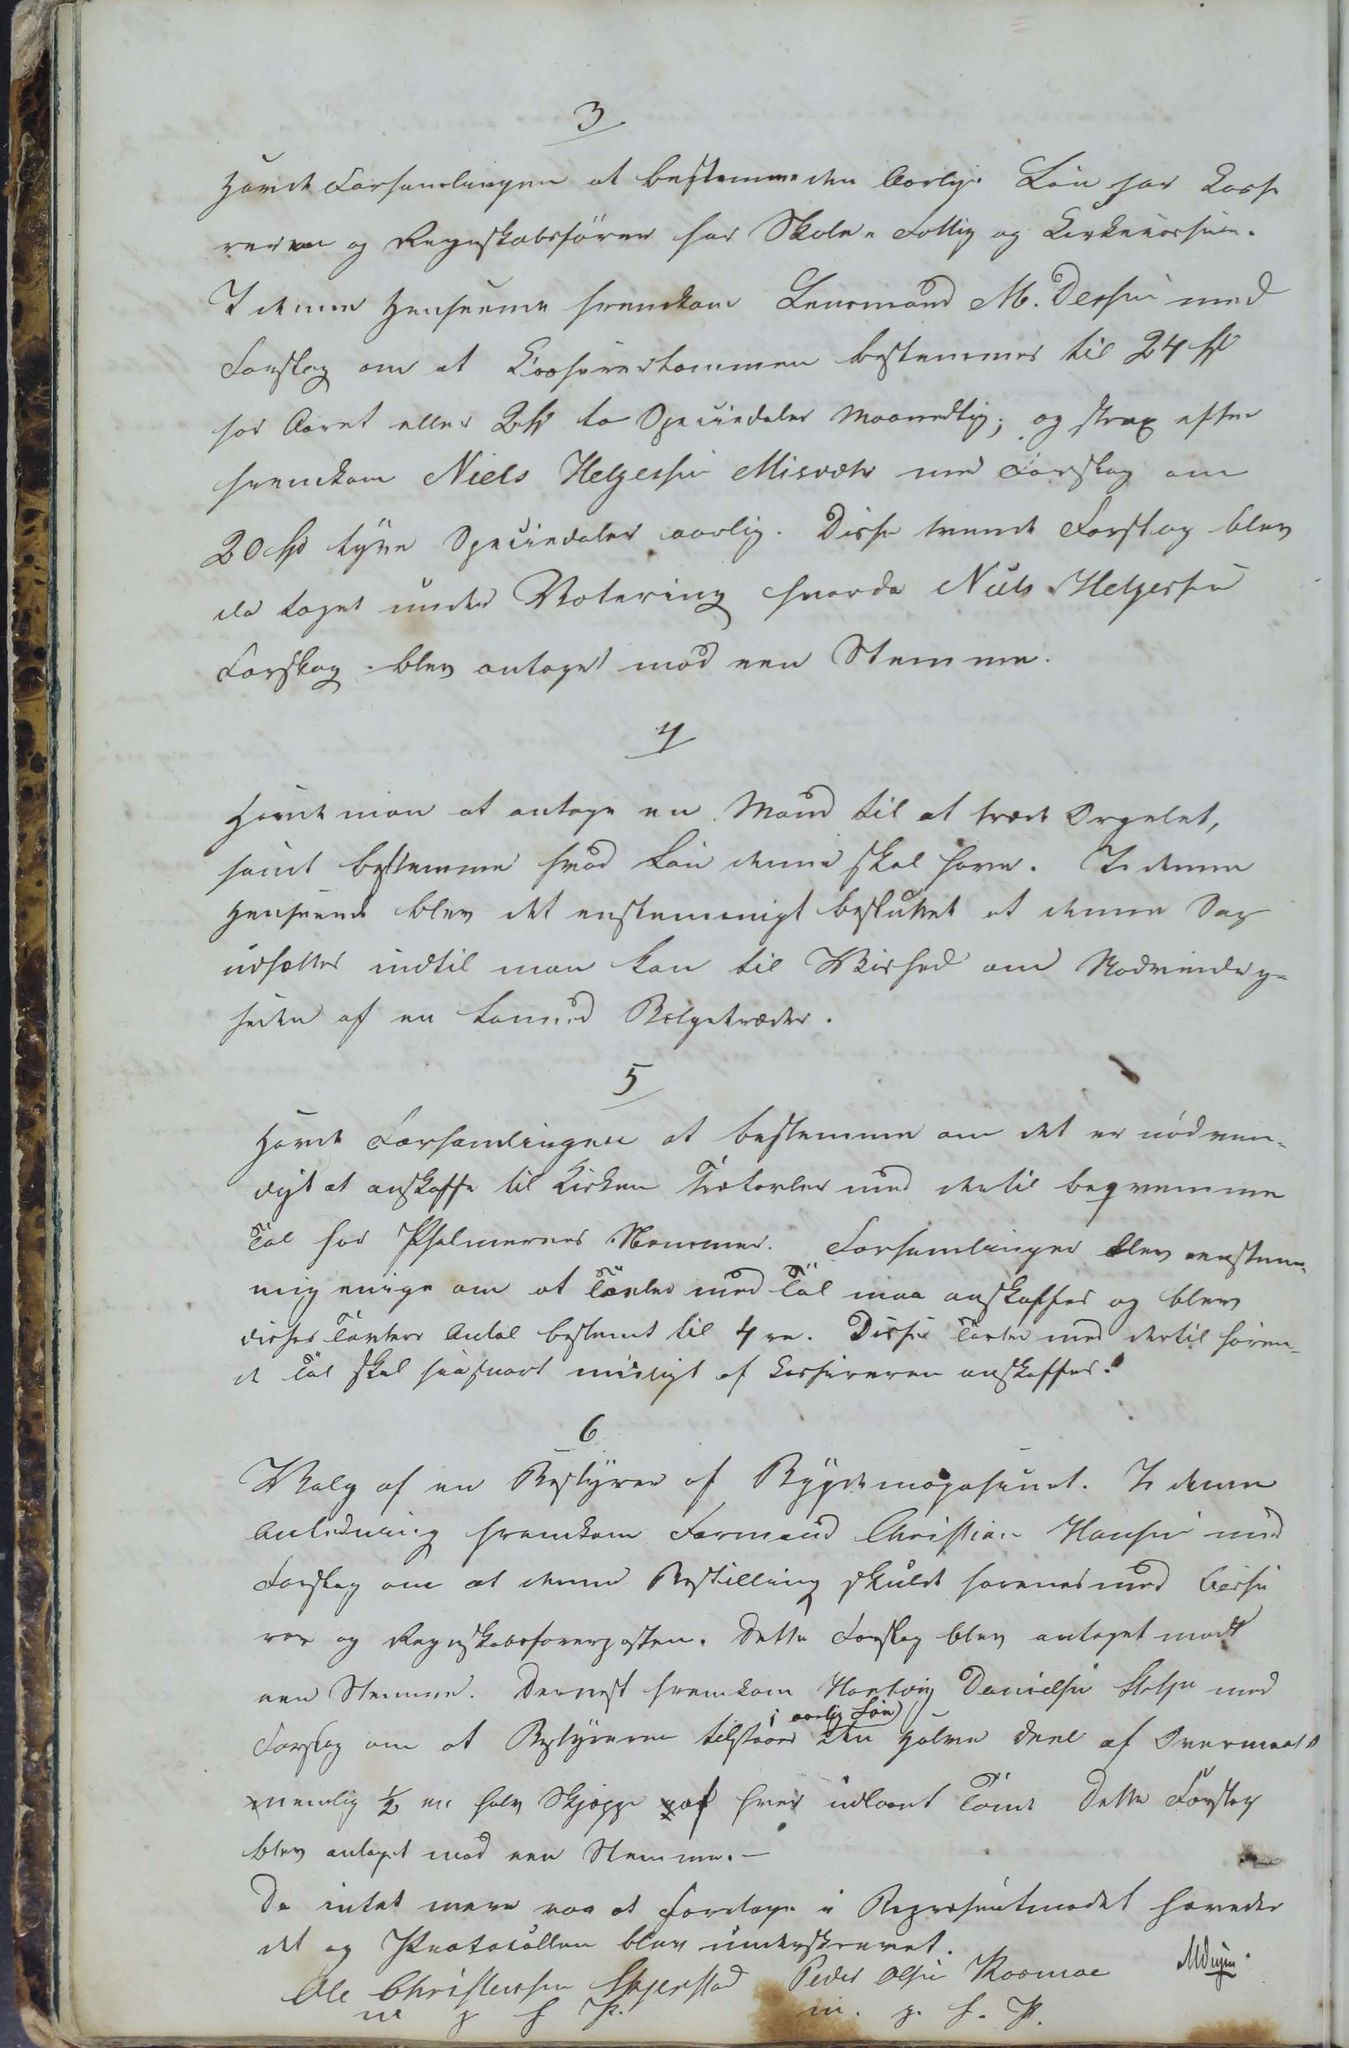 3
Havde Forsamlingen at bestemme den Aarlige Løn for Kasse
reren og Regnskabsfører for Skole- Fattig og Kirkecassen.
I denne Henseende fremkom Lensmand M. Dessen med
Forslag om at Kassererlønnen bestemmes til 24 Spd
for Aaret eller 2 Spd to Speciedaler Maanedlig; og strax efter
fremkom Niels Helgesen Misvær med Forslag om
20 Spd tyve Speciedaler aarlig. Disse tvende Forslag blev
da taget under Votering hvorda Niels Helgesens
Forslag blev antaget mod een Stemme.
4
Havde man at antage en Mand til at træde Orgelet,
samt bestemme hvad Løn denne skal have. I denne
Henseende blev det enstemmigt besluttet at denne Sag
udsættes indtil man kan til Vished om Nødvendig-
heden af en Belgetræder.
5
Havde Forsamlingen at bestemme om det er nødven-
digt at anskaffe til Kirken Trætavler med dertil beqvemme
Tal for Psalmernes Nummer. Forsamlingen blev eenstem-
mig enige om at Tavler med Tal maa anskaffes og blev
disses Tavlers Antal bestemt til 4 re. Disse Tavler med dertil høren-
de Tal skal saasnart muligt af Kassereren anskaffes.
6
Valg af en Bestyrer af Bygdemagasinet. I denne
Anledning fremkom Formand Christian Hansen med
Forslag om at denne Bestilling skulde forenes med Casse
rer og Regnskabsførerposten. Dette Forslag blev antaget modt
een Stemme. Dernest fremkom Hartvig Danielsen med
i aarlig Løn
Forslag om at Bestyreren tilstaaes den halve Deel af Overmaal
nemlig ½ en halv Skjeppe af hver udlaant Tønde Dette Forslag
blev antaget mod een Stemme.-
Da intet mere var at foretage i Repræsentmødet hævedes
det og Protocollen blev underskrevet.
Ole Christensen Skjerstad Peder Olsen Rosmoe
m p f P. m. p. f. P.